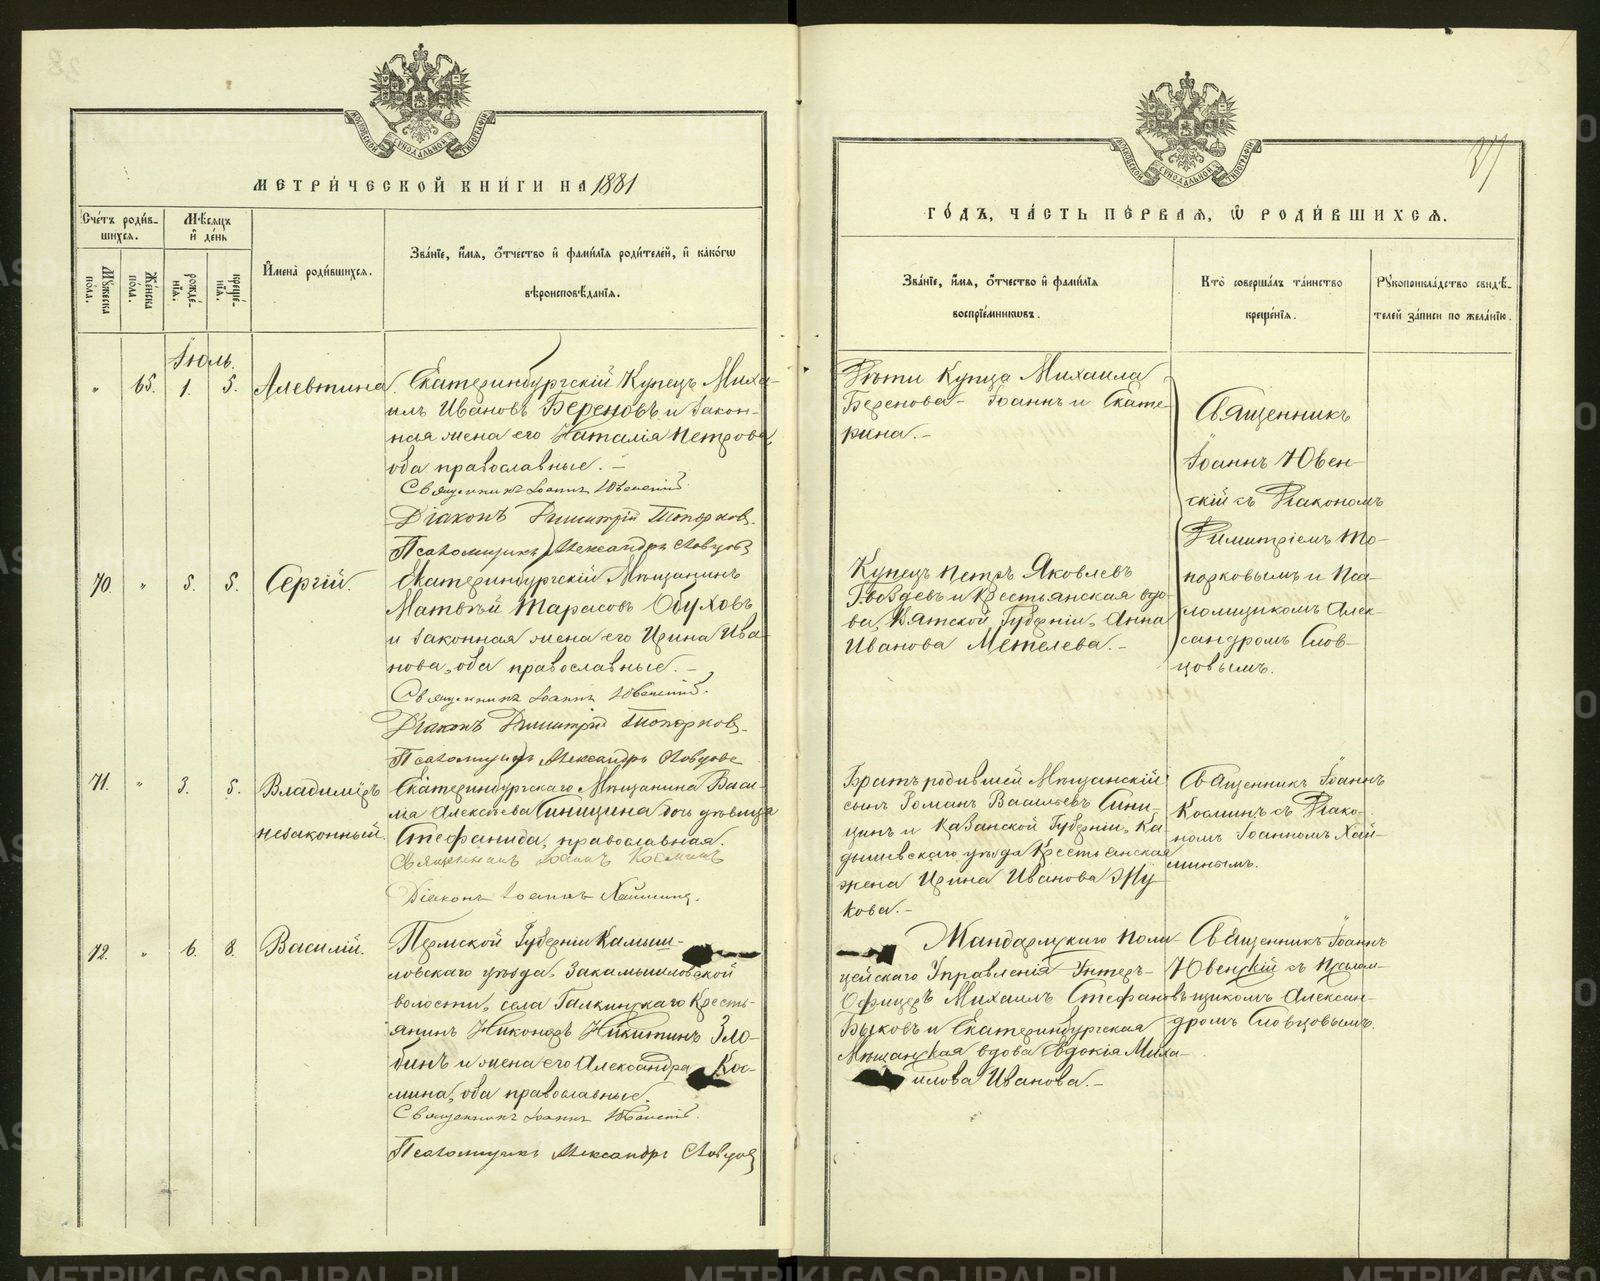 МЕТРИ́ЧЕСКОЙ КНИ́ГИ НА 1881
Сче́тъ роди́в-
шихсѧ.
Мѣ́сѧцъ
и҆ де́нь
Мꙋ́жеска
по́ла.
Же́нска
по́ла.
рожде́-
нїѧ.
креще́-
нїѧ.
И҆мена̀ роди́вшихсѧ.
Зва́нїе, и҆́мѧ, ѻ҆́тчество и҆ фами́лїѧ роди́телей, и҆ како́гѡ
вѣроисповѣ́данїѧ.
Іюль.
" 65. 1. 5. Алевтина.
Екатеринбургскій Купецъ Миха-
илъ Ивановъ Береновъ и закон-
ная жена его Наталія Петрова,
оба православные. –
Священникъ Іоаннъ Ювенскій.
Діаконъ Димитрій Топорковъ.
Псаломщикъ Александръ Словцовъ
70. " 5. 5. Сергій.
Екатеринбургскій Мѣщанинъ
Матвѣй Тарасовъ Обуховъ
и законная жена его Ирина Ива-
нова, оба православные. –
Священникъ Іоаннъ Ювенскій.
Діаконъ Димитрій Топорковъ.
Псаломщикъ Александръ Словцовъ
71. " 3. 5. Владиміръ
незаконный.
Екатеринбургскаго Мѣщанина Васи-
лія Алексѣева Синицина дочь дѣвица
Стефанида, православная.
Священникъ Іоаннъ Косминъ
Діаконъ Іоаннъ Хайминъ.
72. " 6. 8. Василій.
Пермской Губерніи Камыш-
ловскаго уѣзда, Закамышловской
волости, села Галкинскаго Кресть-
янинъ Никоноръ Никитинъ Зло-
бинъ и жена его Александра Кос-
мина, оба православные.
Священникъ Іоаннъ Ювенскій.
Псаломщикъ Александръ Словцовъ
37
ГО́ДЪ, ЧА́СТЬ ПЕ́РВАЯ, Ѡ҆ РОДИ́ВШИХСѦ.
Зва́нїе, и҆́мѧ, ѻ҆́тчество и҆ фами́лїѧ
воспрїе́мниковъ.
Кто̀ соверша́лъ та́инство
креще́нїѧ.
Рꙋкоприкла́дство свидѣ́-
телей за́писи по жела́нїю.
Дѣти Купца Михаила
Беренова – Іоаннъ и Екате-
рина. –
Священникъ
Іоаннъ Ювен-
скій съ Діакономъ
Димитріемъ То-
порковымъ и Пса-
ломщикомъ Алек-
сандромъ Слов-
цовымъ.
Купецъ Петръ Яковлевъ
Гвоздевъ и Крестьянская вдо-
ва, Вятской Губерніи, Анна
Иванова Метелева. –
Братъ родившей Мѣщанскій
сынъ Романъ Васильевъ Сини-
цинъ и Казанской Губерніи, Ка-
дышевскаго уѣзда Крестьянская
жена Ирина Иванова Жу-
кова. –
Священникъ Іоаннъ
Косминъ съ Діако-
номъ Іоанномъ Хай-
минымъ.
Жандармскаго Поли-
цейскаго Управленія Унтеръ-
Офицеръ Михаилъ Стефановъ
Быковъ и Екатеринбургская
Мѣщанская вдова Евдокія Миха-
илова Иванова. –
Священникъ Іоаннъ
Ювенскій съ Псалом-
щикомъ Алексан-
дромъ Словцовымъ.
METRIKI.GASO-URAL.RU